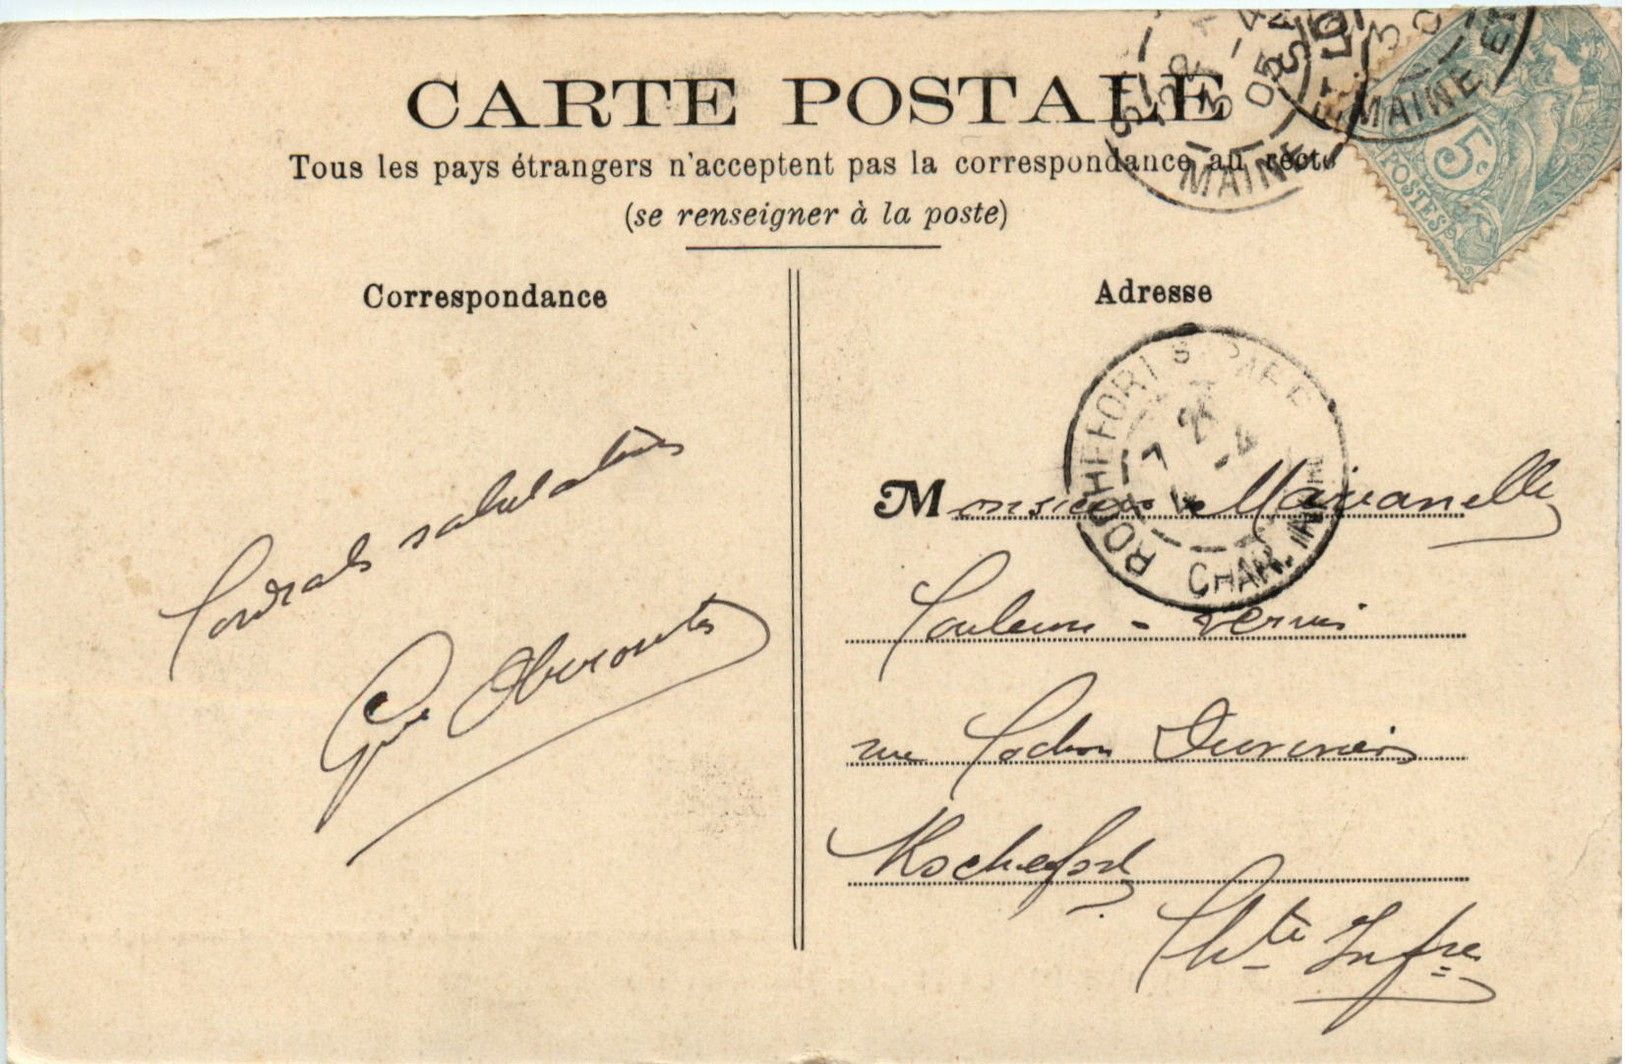 CARTE POSTALE
Tous les pays étrangers n'acceptent pas la correspondance au recto
(se renseigner à la poste)
Correspondance
Adresse
MAINE
3 -4
05
MAINE ET
POSTES
5c
ROCHEFORT S. MER
CHAR. INF
Cordiales salutations
Monsieur
Couleurs - Vernis
rue Cochon Duvivier
Rochefort
Chte Infre